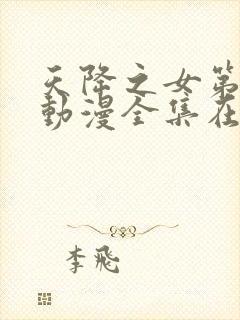 天降之女第
動漫全集在
李飛